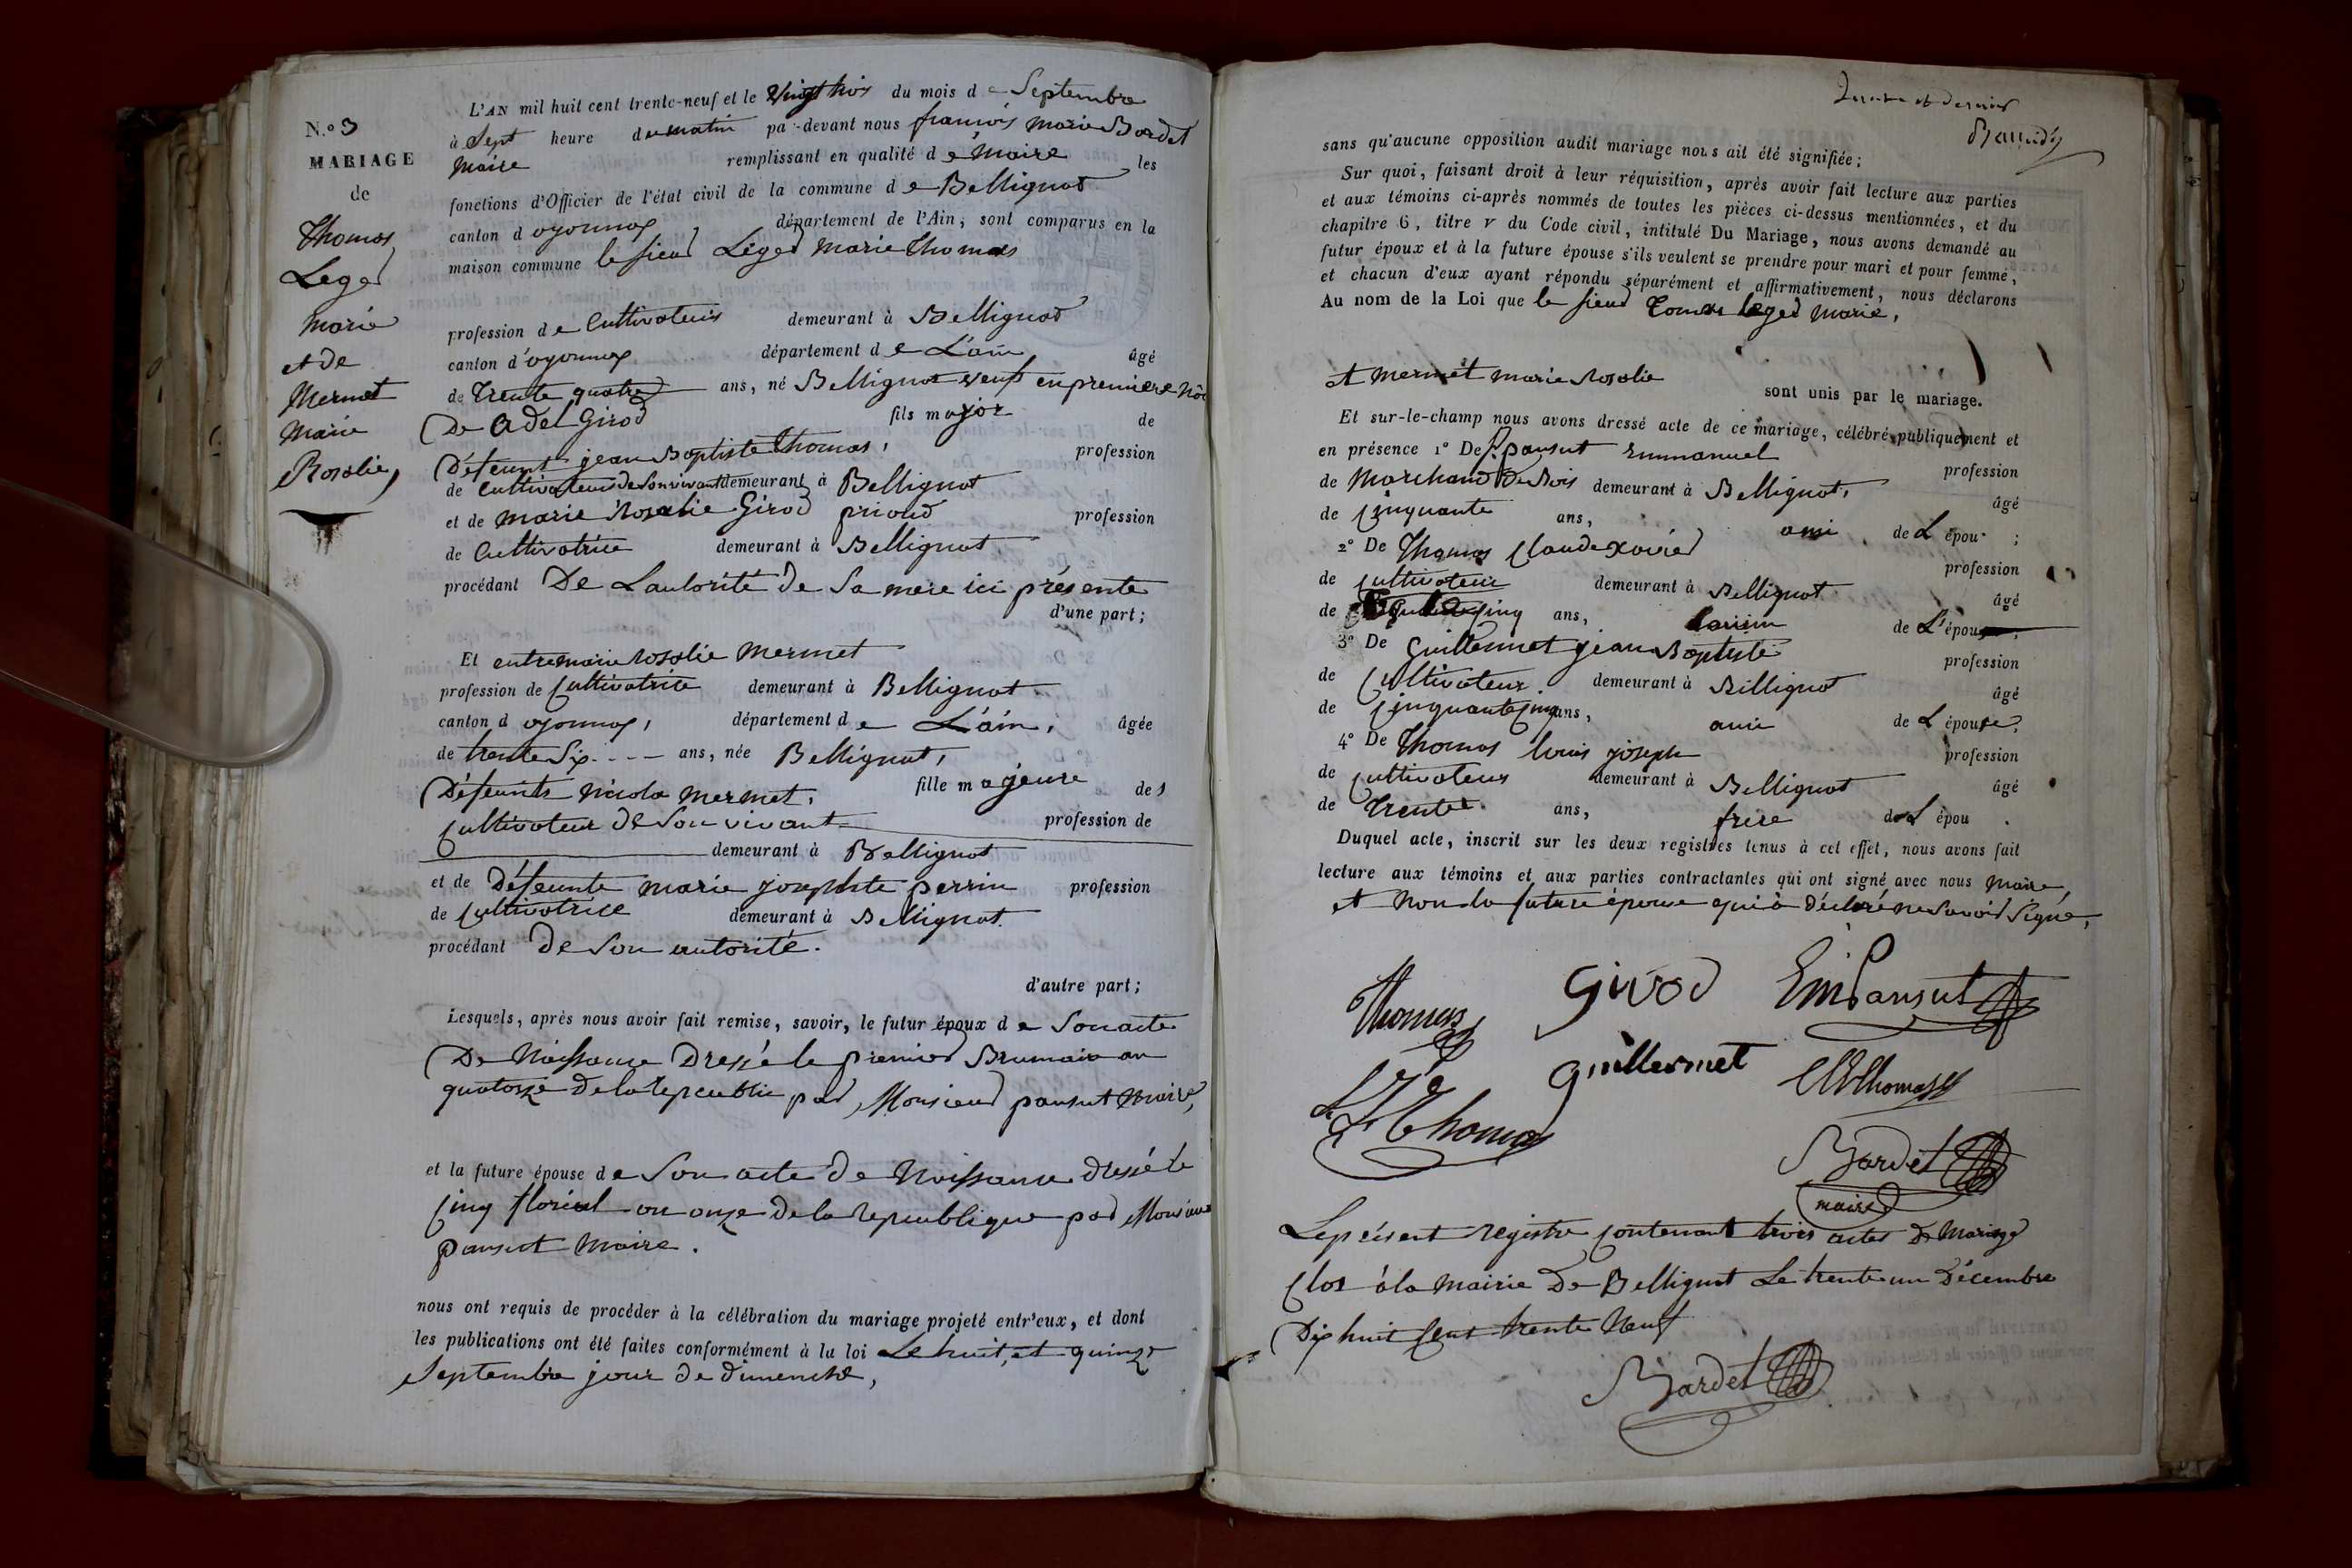 N.o 3
MARIAGE
de
Thomas
Leger
marie
et de
Mermet
Marie
Rosalie,
L'AN mil huit cent trente-neuf et le vingt trois du mois de Septembre
à Sept heure du matin par-devant nous françois marie Bardet
Maire remplissant en qualité de Maire les
fonctions d'Officier de l'état civil de la commune de Bellignat
canton d oyonnax département de l'Ain, sont comparus en la
maison commune le sieur Leger marie Thomas
profession de Cultivateur demeurant à Bellignat
canton d'oyonnax département de L'ain âgé
de Trente quatre ans, né Bellignat veuf en premiere
De Adel Girod fils major de
Défeunt jean Baptiste Thomas, profession
de Cultivateur de son vivant demeurant à Bellignat
et de marie Rosalie Girod priond profession
de Cultivatrice demeurant à Bellignat
procédant De Lautorité de Sa mere ici présente
d'une part;
Et entre marie rosalie mermet
profession de Cultivatrice demeurant à Bellignat
canton d oyonnax, département de L'ain, âgée
de trente Six ans, née Bellignat,
Défeunts Nicola Mermet, fille majeure des
Cultivateur de Son vivant profession de
demeurant à Bellignat
et de Défeunte marie josephte perrin profession
de Cultivatrice demeurant à Bellignat
procédant de Son autorité.
d'autre part;
Lesquels, après nous avoir fait remise, savoir, le futur époux de Son acte
De Naissance Dressé le premier Brumair an
quatorze de la republic par Monsieur pansut maire,
et la future épouse de Son acte de Naissance dressé le
Cinq floréal an onze de la republique par Monsieur
pansut Maire.
nous ont requis de procéder à la célébration du mariage projeté entr'eux, et dont
les publications ont été faites conformément à la loi Le huit, et quinze
Septembre jour de dimenche,
et dernier
sans qu'aucune opposition audit mariage nous ait été signifiée;
Sur quoi, faisant droit à leur réquisition, après avoir fait lecture aux parties
et aux témoins ci-après nommés de toutes les pièces ci-dessus mentionnées, et du
chapitre 6, titre v du Code civil, intitulé Du Mariage, nous avons demandé au
futur époux et à la future épouse s'ils veulent se prendre pour mari et pour femme,
et chacun d'eux ayant répondu séparément et affirmativement, nous déclarons
Au nom de la Loi que le sieur Tomas leger Marie,
et mermet marie Rosalie
sont unis par le mariage.
Et sur-le-champ nous avons dressé acte de ce mariage, célébré publiquement et
en présence 1o De pansut Emmanuel
profession
de Marchand De Bois demeurant à Bellignat,
âgé
de Cinquante ans, ami de L épou ;
2o De Thomas Claude xavier
profession
de Cultivateur demeurant à Bellignat
âgé
de cinq ans, Cousin de L'épou
3o De Guillermet jean Baptiste
profession
de Cultivateur. demeurant à Bellignat
âgé
de Cinquante cinq ans, amie de L épouse,
4o De Thomas louis joseph
profession
de Cultivateur demeurant à Bellignat
âgé
de Trente ans, frere de L épou .
Duquel acte, inscrit sur les deux registres tenus à cet effet, nous avons fait
lecture aux témoins et aux parties contractantes qui ont signé avec nous Maire,
et Non la future épouse qui à déclaré ne Savoir Signé,
Thomas Girod Em Pansut
Guillermet Thomas
L J Thomas
Bardet
maire
Le présent registre contenant trois actes de Mariage
Clos à la Mairie De Bellignat Le trente un Décembre
Dix huit Cent trente Neuf
Bardet